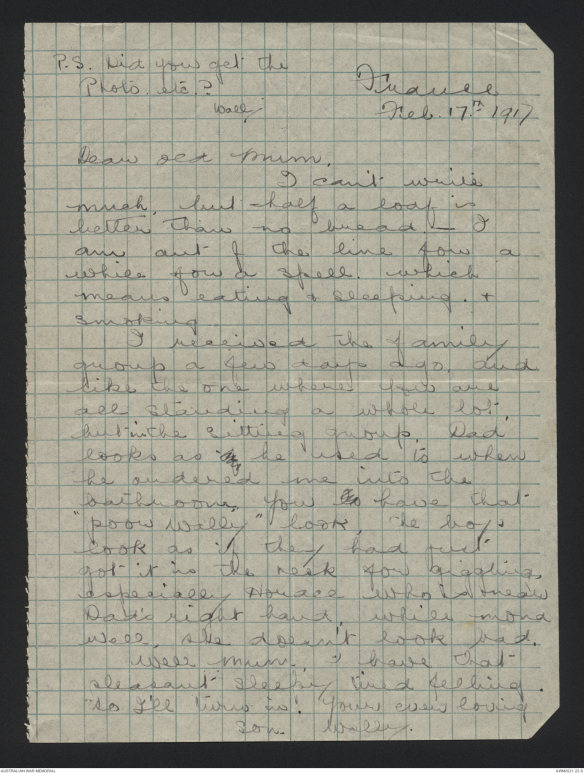 P.S. Did you get the
Photo. etc.?
Wally
France
Feb. 17th 1917
Dear old Mum,
I can't write
much, but half a loaf is
better than no bread — I
am out of the line for a
while for a spell. which
means eating & sleeping. &
smoking.
I received the family
group a few days ago, and
like the one where you are
all standing a whole lot,
but in the sitting group, Dad
looks as he used to when
he ordered me into the
bathroom, you have that
"poor Wally" look, the boys
look as if they had just
got it in the neck for giggling,
especially Horace who is near
Dad's right hand, while Mona
well, she doesn't look bad.
Well Mum, I have that
pleasant sleepy tired feeling.
so I'll "turn in". Your ever loving
son Wally.
AUSTRALIAN WAR MEMORIAL